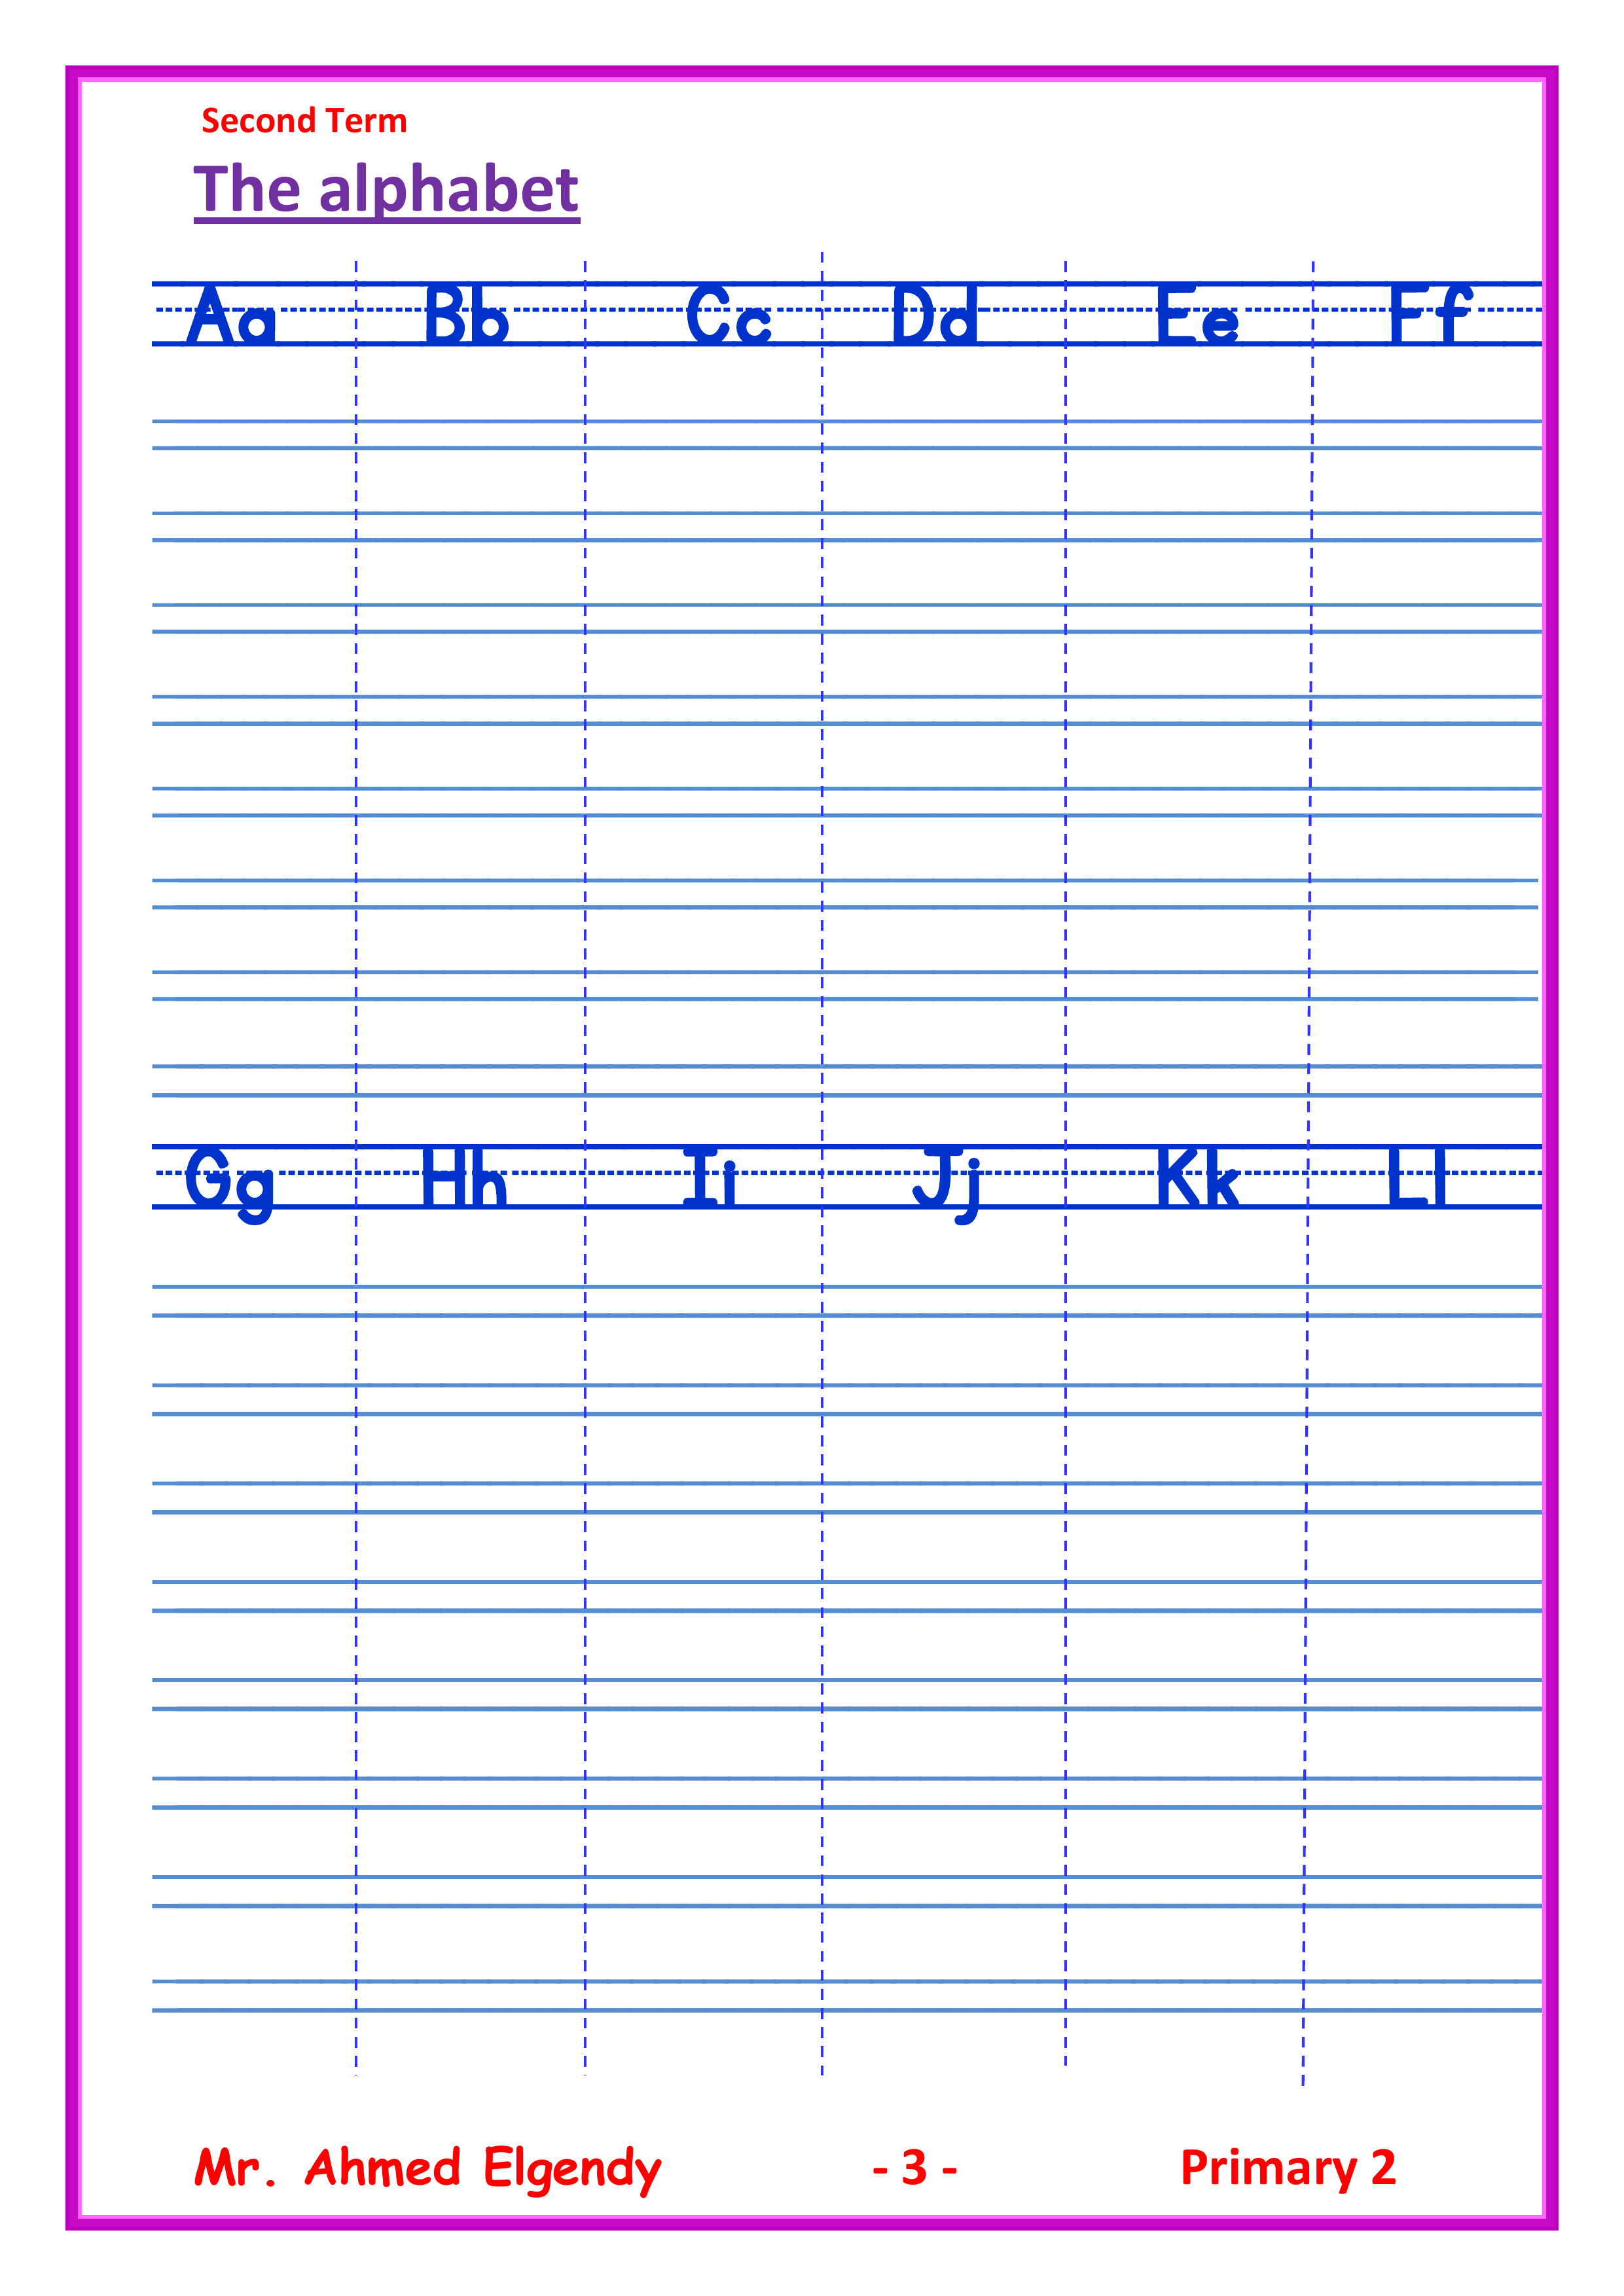 Second Term
The alphabet
Aa Bb Cc Dd Ee Ff
Gg Hh Ii Jj Kk Ll
Mr. Ahmed Elgendy - 3 - Primary 2